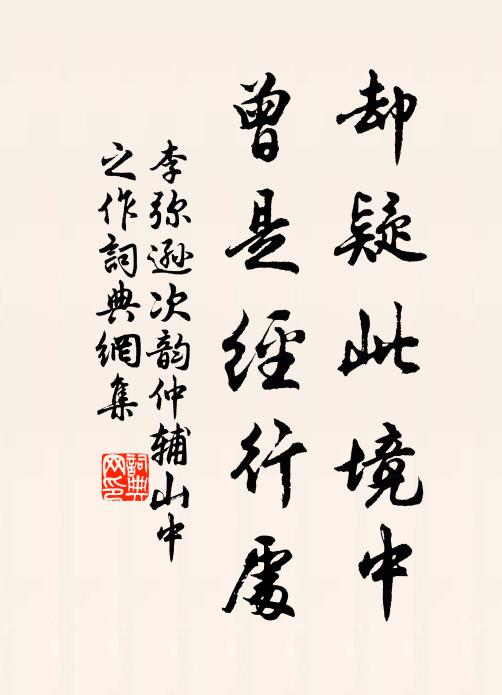 却疑此境中
曾是經行處
李弥遜次韵仲辅山中
之作詞典網集
詞典
网印